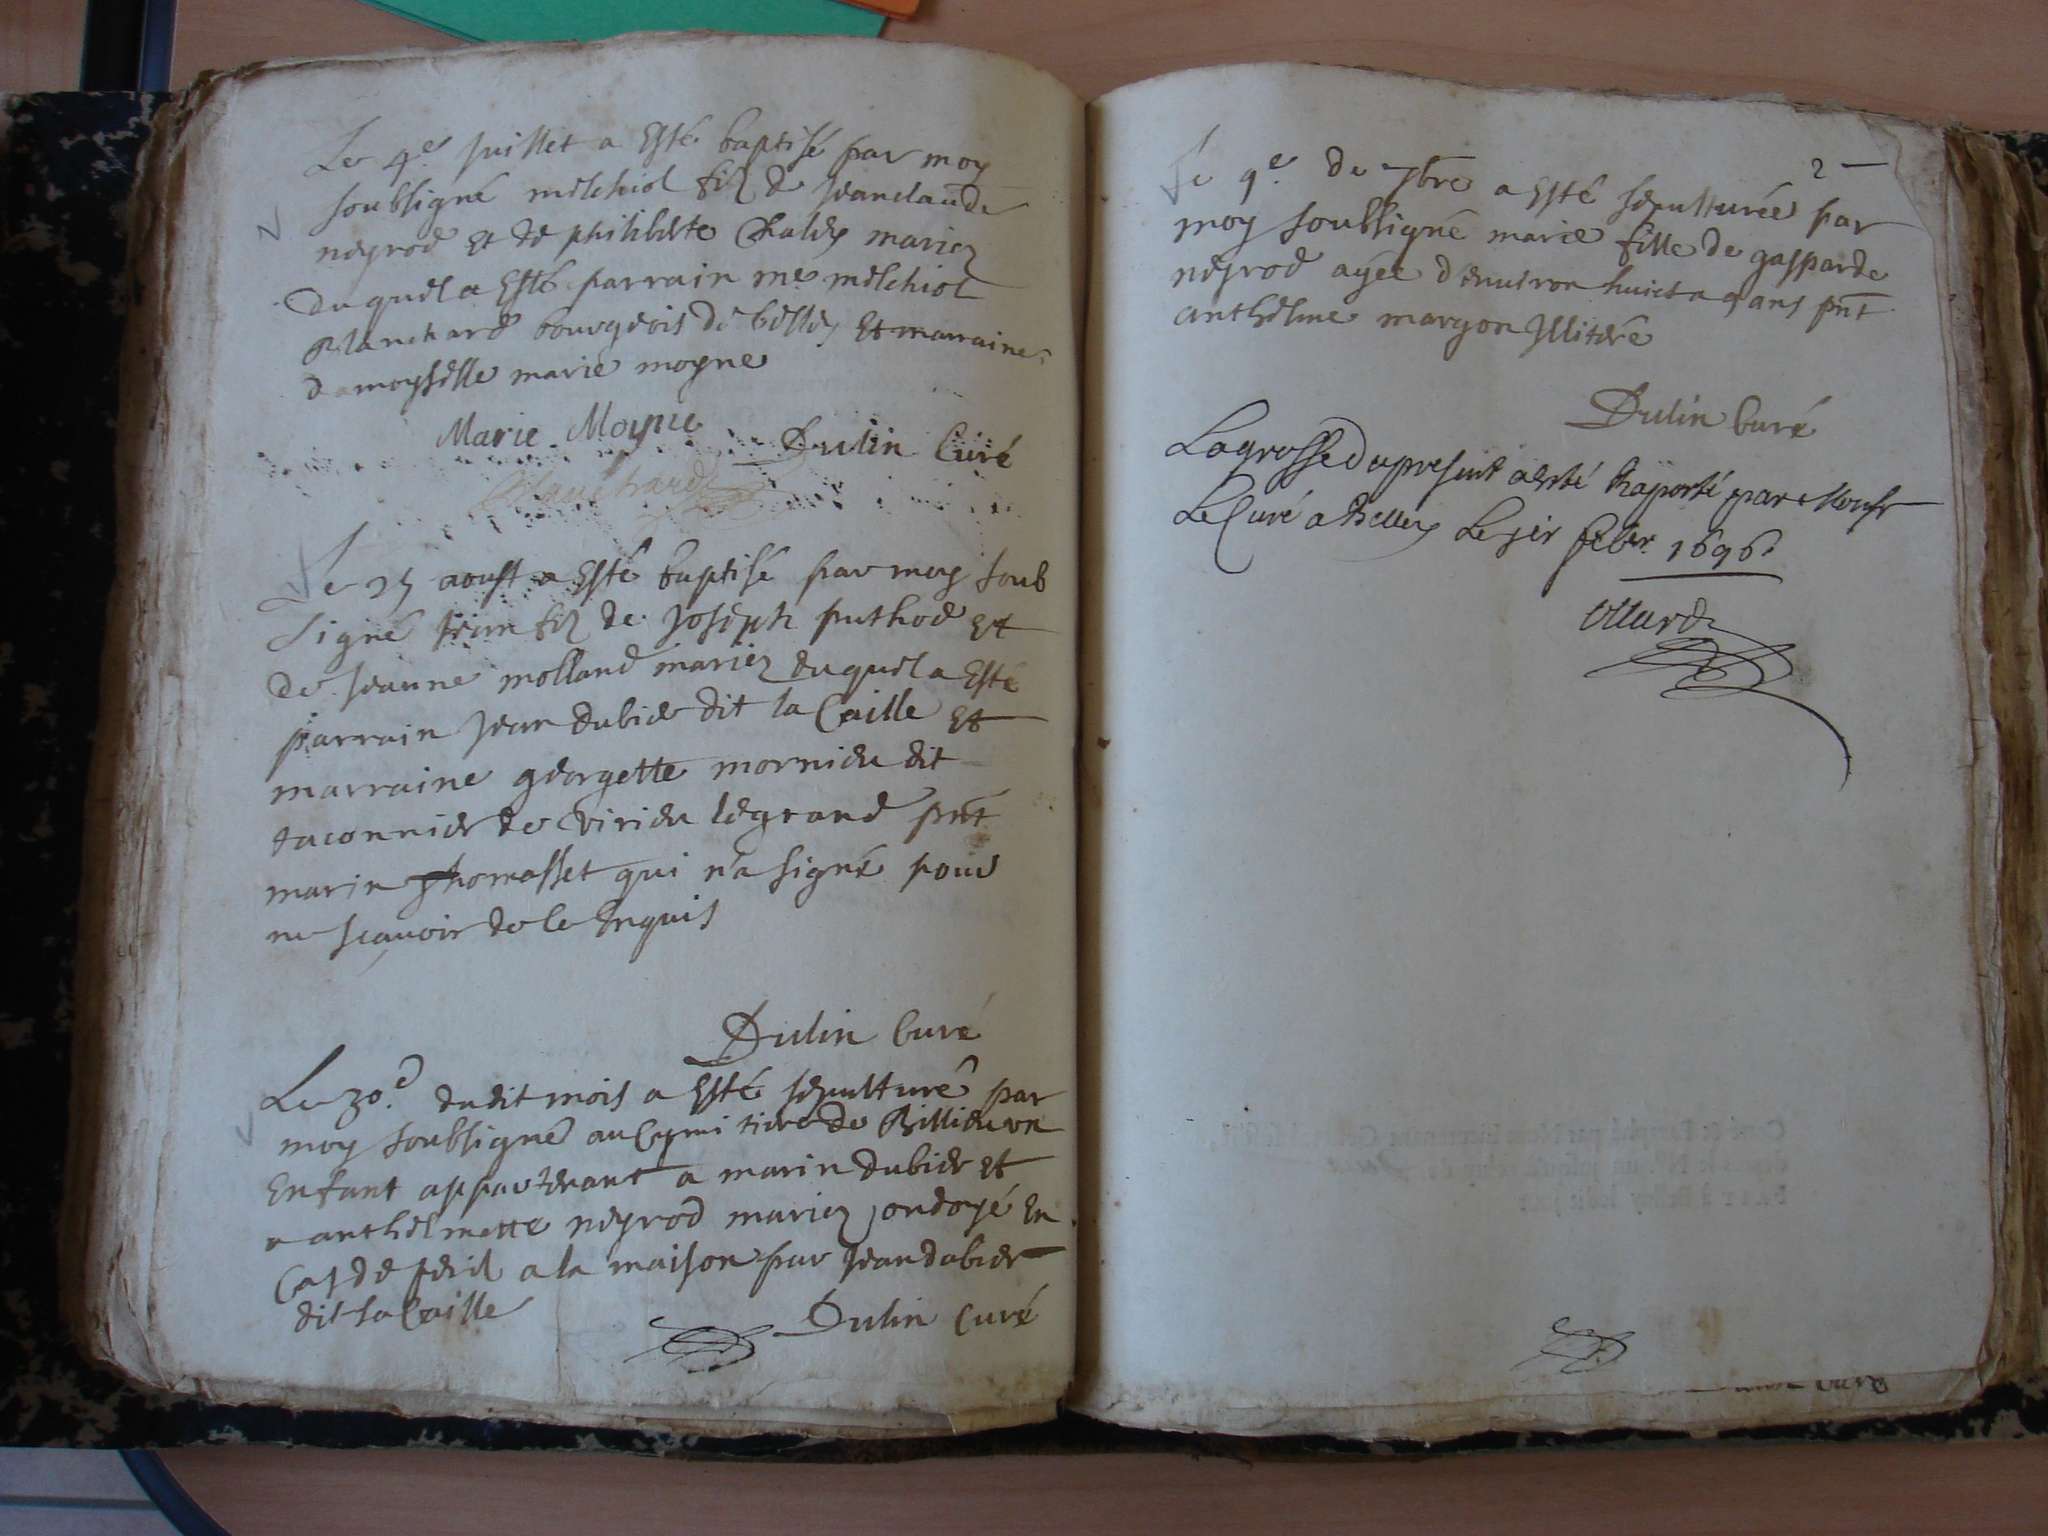 Le 4e Juillet a Esté baptisé par moy
soubsigné melchiol filz de Jeanclaude
neyrod Et de philiberte Chaley mariez
duquel a Esté parrain me melchiol
Blanchard bourgeois de belley Et marraine
damoyselle marie moyne
Marie Moyne
Dulin Curé
Blanchard
Le 25 aoust a Esté baptisé par moy soub
signé Jean filz de Joseph puthod Et
de Jeanne molland mariez duquel a Esté
parrain Jean dubier dit la Caille Et
marraine georgette mornieu dit
taconnier de Virieu legrand pnt
marin thomasset qui n'a signé pour
ne scauoir de ce Enquis
Dulin Curé
Le 30e dudit mois a Esté sepulturé par
moy soubsigné au Cymitiere de Billieu vn
Enfant appartenant a marin dubier Et
a anthelmette neyrod mariez ondoyé En
Cas de peril a la maison par Jean dubier
dit la Caille
Dulin Curé
2
Le 9e de 7bre a Esté sepulturée par
moy soubsigné marie fille de gasparde
neyrod agée d'enuiron huict a 9 ans pnt
anthelme margon Illiteré
Dulin Curé
La grosse du present a esté Raporté par Monsr
Le Curé a Belley Le jer febvr 1696